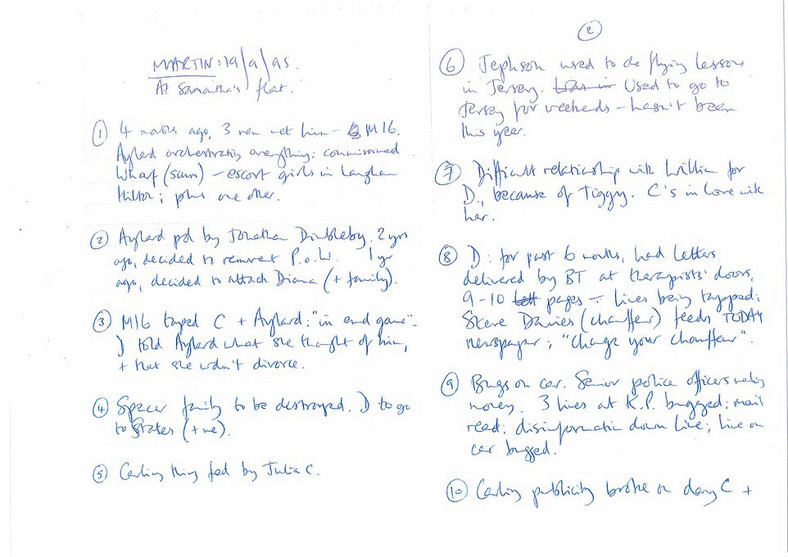 MARTIN: 19/9/95.
At Samantha's flat.
① 4 months ago, 3 men met him – MI6.
Aylard orchestrating everything: commissioned
Wharf (scum) – escort girls in Langham
Hilton; plus one other.
② Aylard pd by Jonathan Dimbleby. 2 yrs
ago, decided to reinvent P.o.W. 1 yr
ago, decided to attack Diana (+ family).
③ MI6 taped C + Aylard: "in end game".
D told Aylard what she thought of him,
+ that she wdn't divorce.
④ Spencer family to be destroyed. D to go
to States (+ve).
⑤ Carling thing fed by Julia C.
②
⑥ Jephson used to do flying lessons
in Jersey. Used to go to
Jersey for weekends – hasn't been
this year.
⑦ Difficult relationship with William for
D, because of Tiggy. C's in love with
her.
⑧ D: for past 6 months, had letters
delivered by BT at therapists' doors,
9-10 pages – lines being tapped;
Steve Davies (chauffeur) feeds TODAY
newspaper; "Change your chauffeur".
⑨ Bugs on car. Senior police officers making
money. 3 lines at K.P. bugged; mail
read; disinformation down line; line on
car bugged.
⑩ Carling publicity broke on day C +